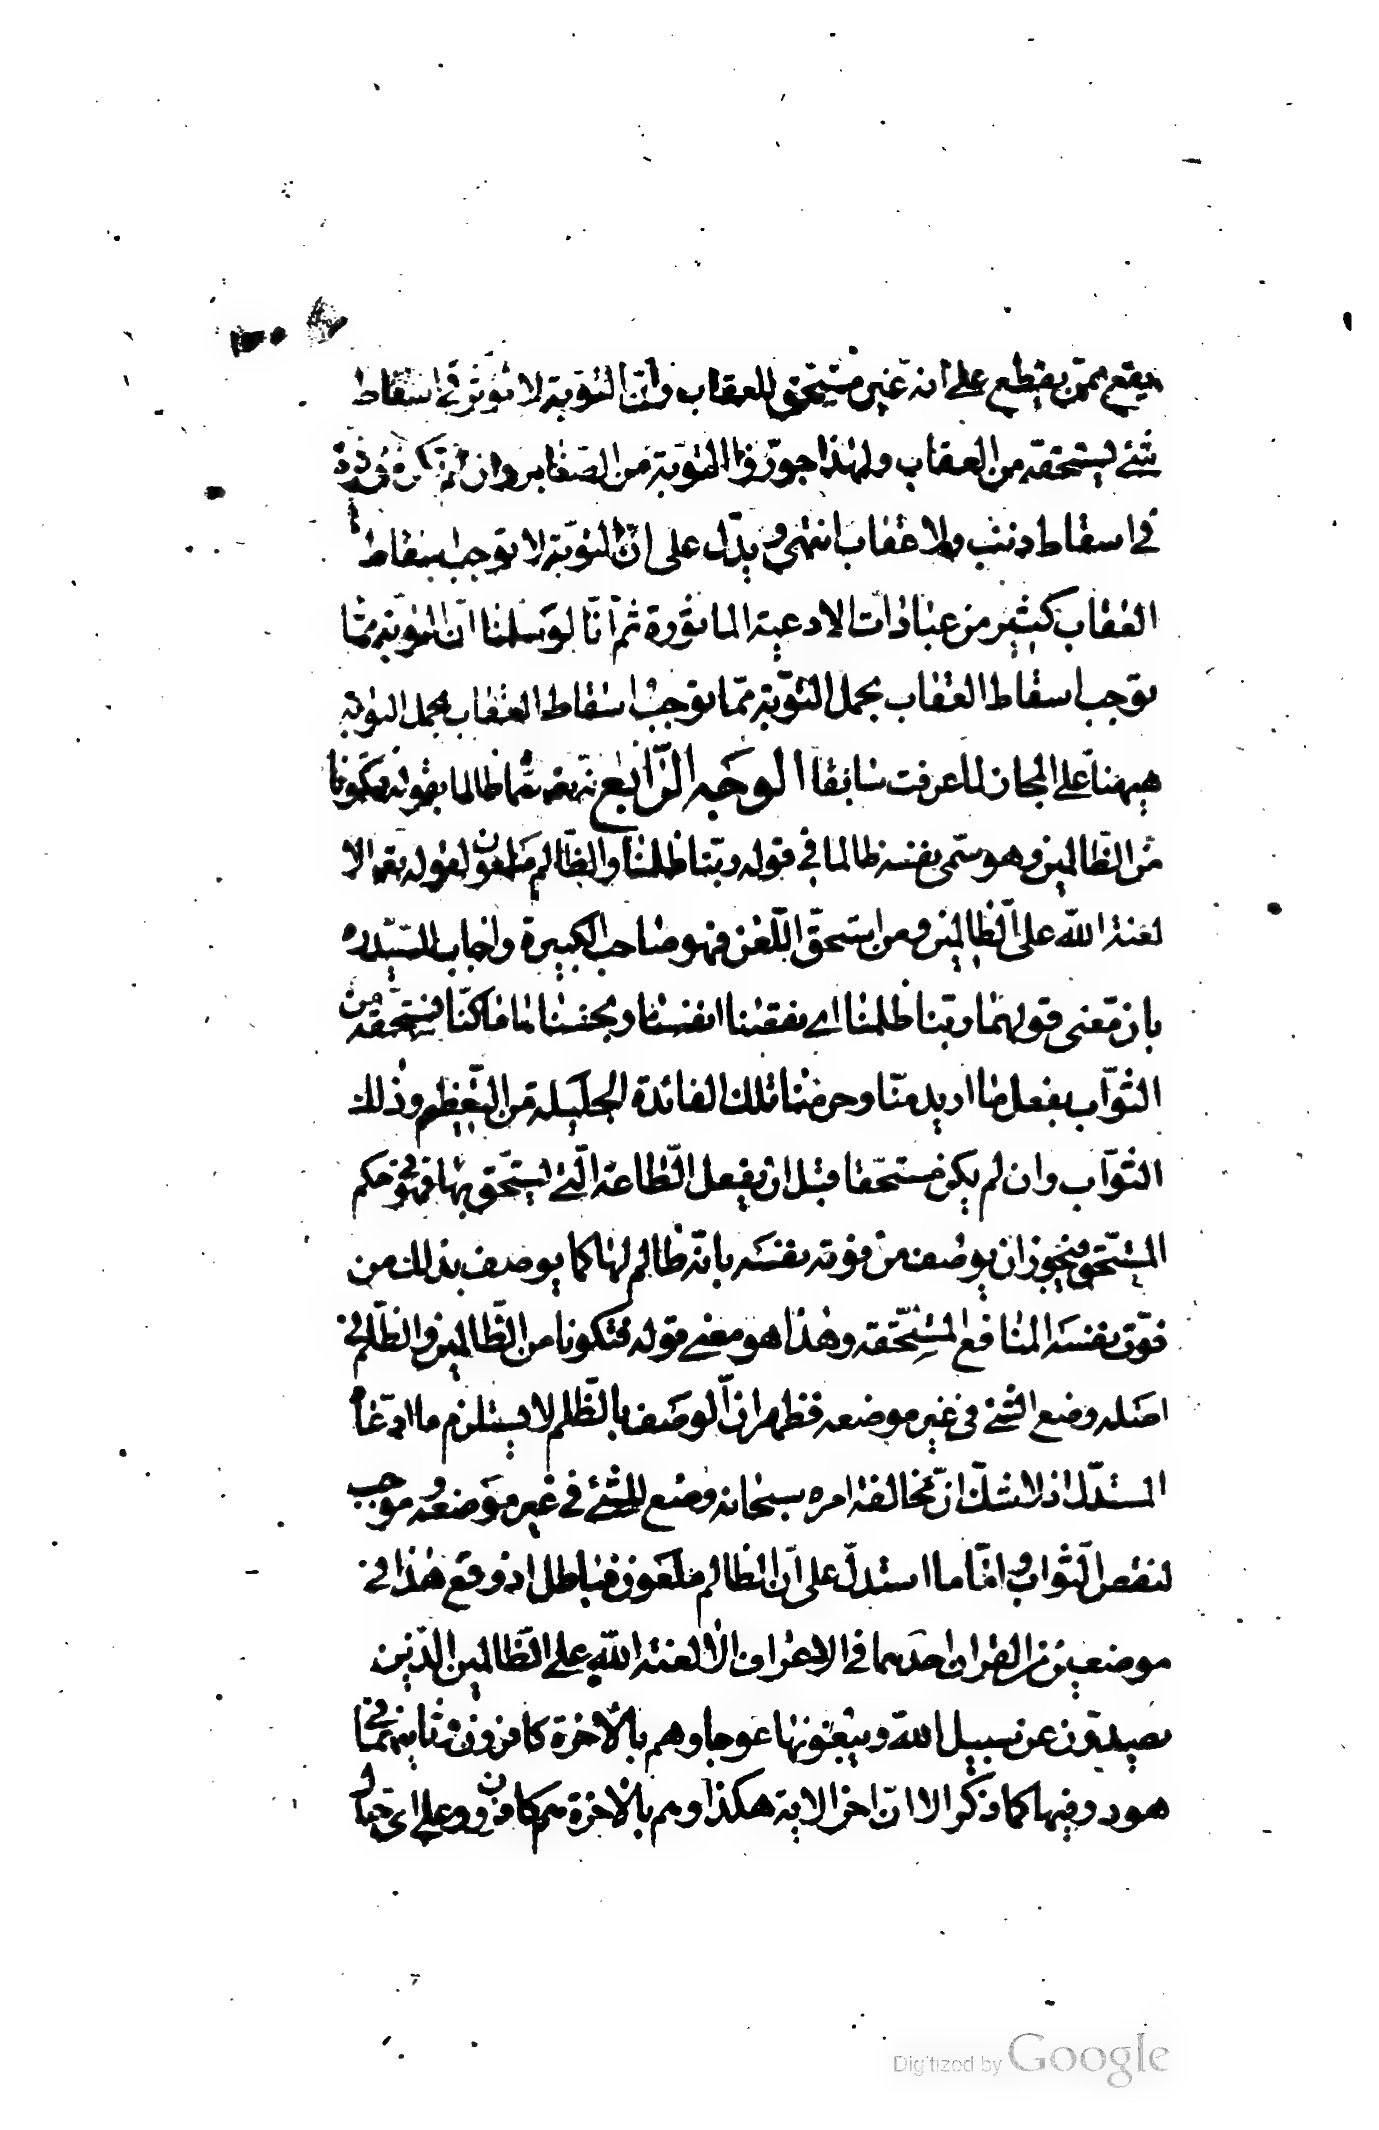 يقع ممن يقطع على انه غير مستحق للعقاب وانّ التوبة لا تؤثر في اسقاط
شئ يستحقه من العقاب ولهذا جوّزوا التوبة من الصغاير وان لم تكن مؤثرة
في اسقاط ذنب ولا عقاب انتهى ويدّل على انّ التوبة لا توجب اسقاط
العقاب كثير من عبارات الادعية الماثورة ثم انّا لو سلمنا انّ التوبة ممّا
توجب اسقاط العقاب يحمل التوبة ممّا توجب اسقاط العقاب يحمل التوبة
هيهنا على المجاز لما عرفت سابقا الوجه الرّابع انّه تعه سمّاه ظالما بقوله فتكونا
من الظّالمين وهو سمّى نفسه ظالما في قوله ربّنا ظلمنا والظّالم ملعون لقوله تعه الا
لعنة الله على الظّالمين ومن استحقّ اللّعن فهو صاحب الكبيرة واجاب السّيّد ره
بان معنى قولهما ربّنا ظلمنا اي نقصنا انفسنا وبخسنا ما كنّا نستحقه من
الثّواب بفعل ما اريد منّا وحرمنا تلك الفائدة الجليلة من التّعظيم وذلك
الثّواب وان لم يكن مستحقا قبل ان يفعل الطّاعة الّتي يستحّق بها فهو في حكم
المستّحق فيجوز ان يوصف من فوته نفسه بانّه ظالم لها كما يوصف بذلك من
فوّت نفسه المنافع المستّحقه وهذا هو معنى قوله فتكونا من الظّالمين والظّلم في
اصله وضع الشئ في غير موضعه فظهر انّ الوصف بالظّلم لا يستلزم ما ادّعاه
المستدّل اذ لا شكّ انّ مخالفة امره سبحانه وضع للشّئ في غير موضعه وموجب
لنقص الثّواب وامّا ما استدلّ على انّ الظّالم ملعون فباطل اذ وقع هذا في
موضعين من القران احدهما في الاعراف الا لعنة الله على الظّالمين الّذين
يصدّون عن سبيل الله ويبغونها عوجا وهم بالاخرة كافرون وثانيهما في
هود وفيها كما ذكر الا انّ اخر الاية هكذا وهم بالاخرة هم كافرون وعلى اي حال